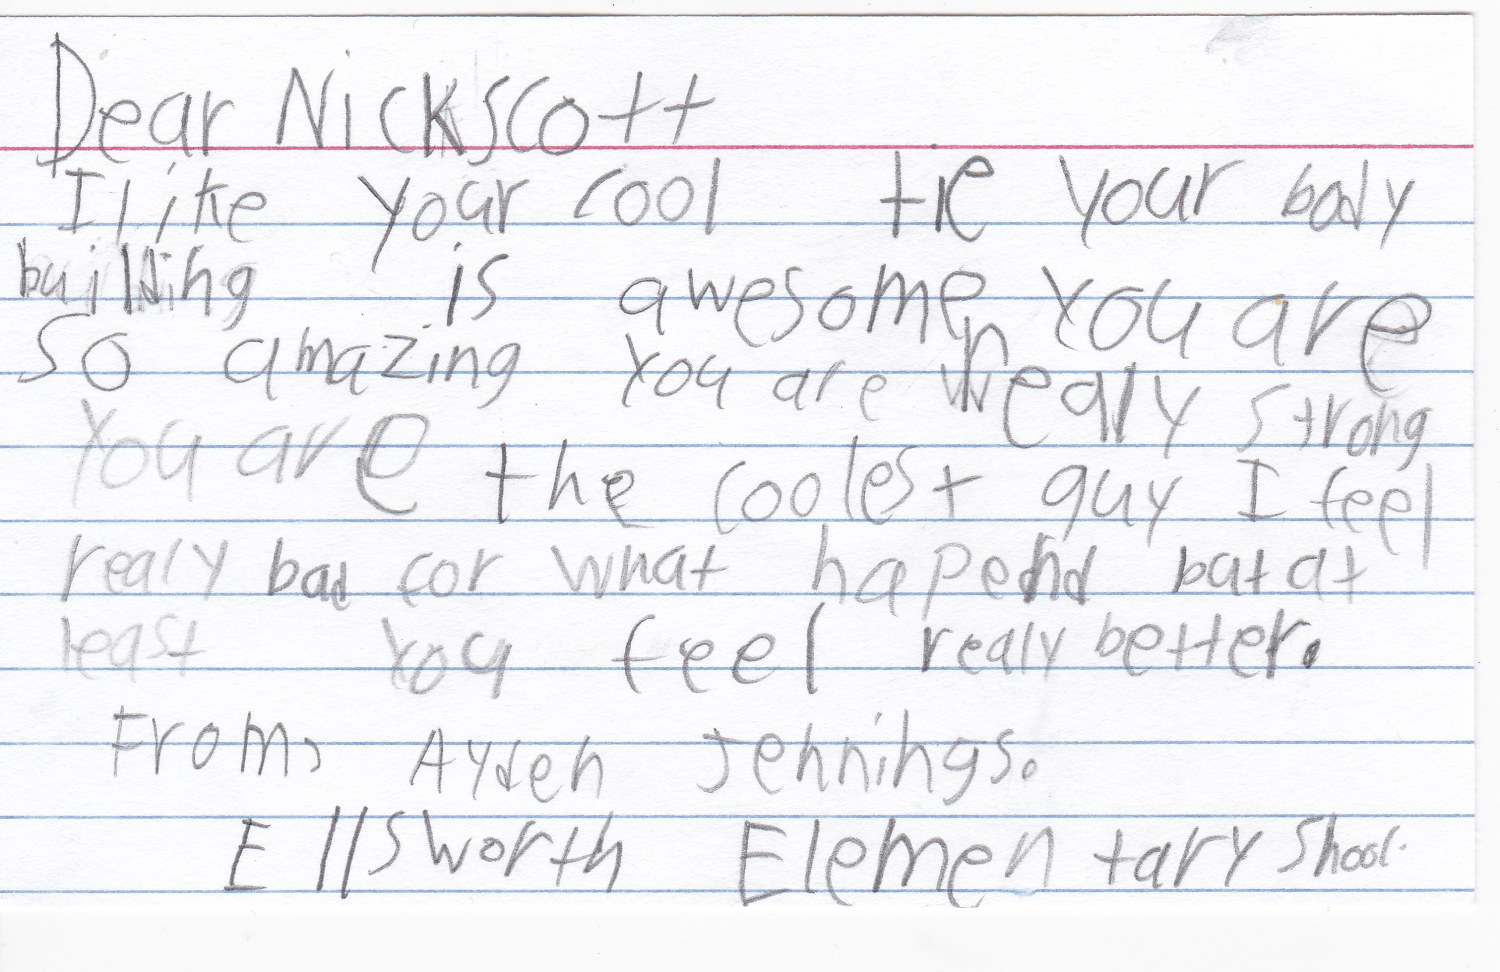 Dear Nick Scott
I like your cool tie your body
building is awesome you are
so amazing you are realy strong
you are the coolest guy I feel
realy bad for what hapend bat at
least you feel realy better.
From, Ayden Jennings.
Ellsworth Elementary Shool.